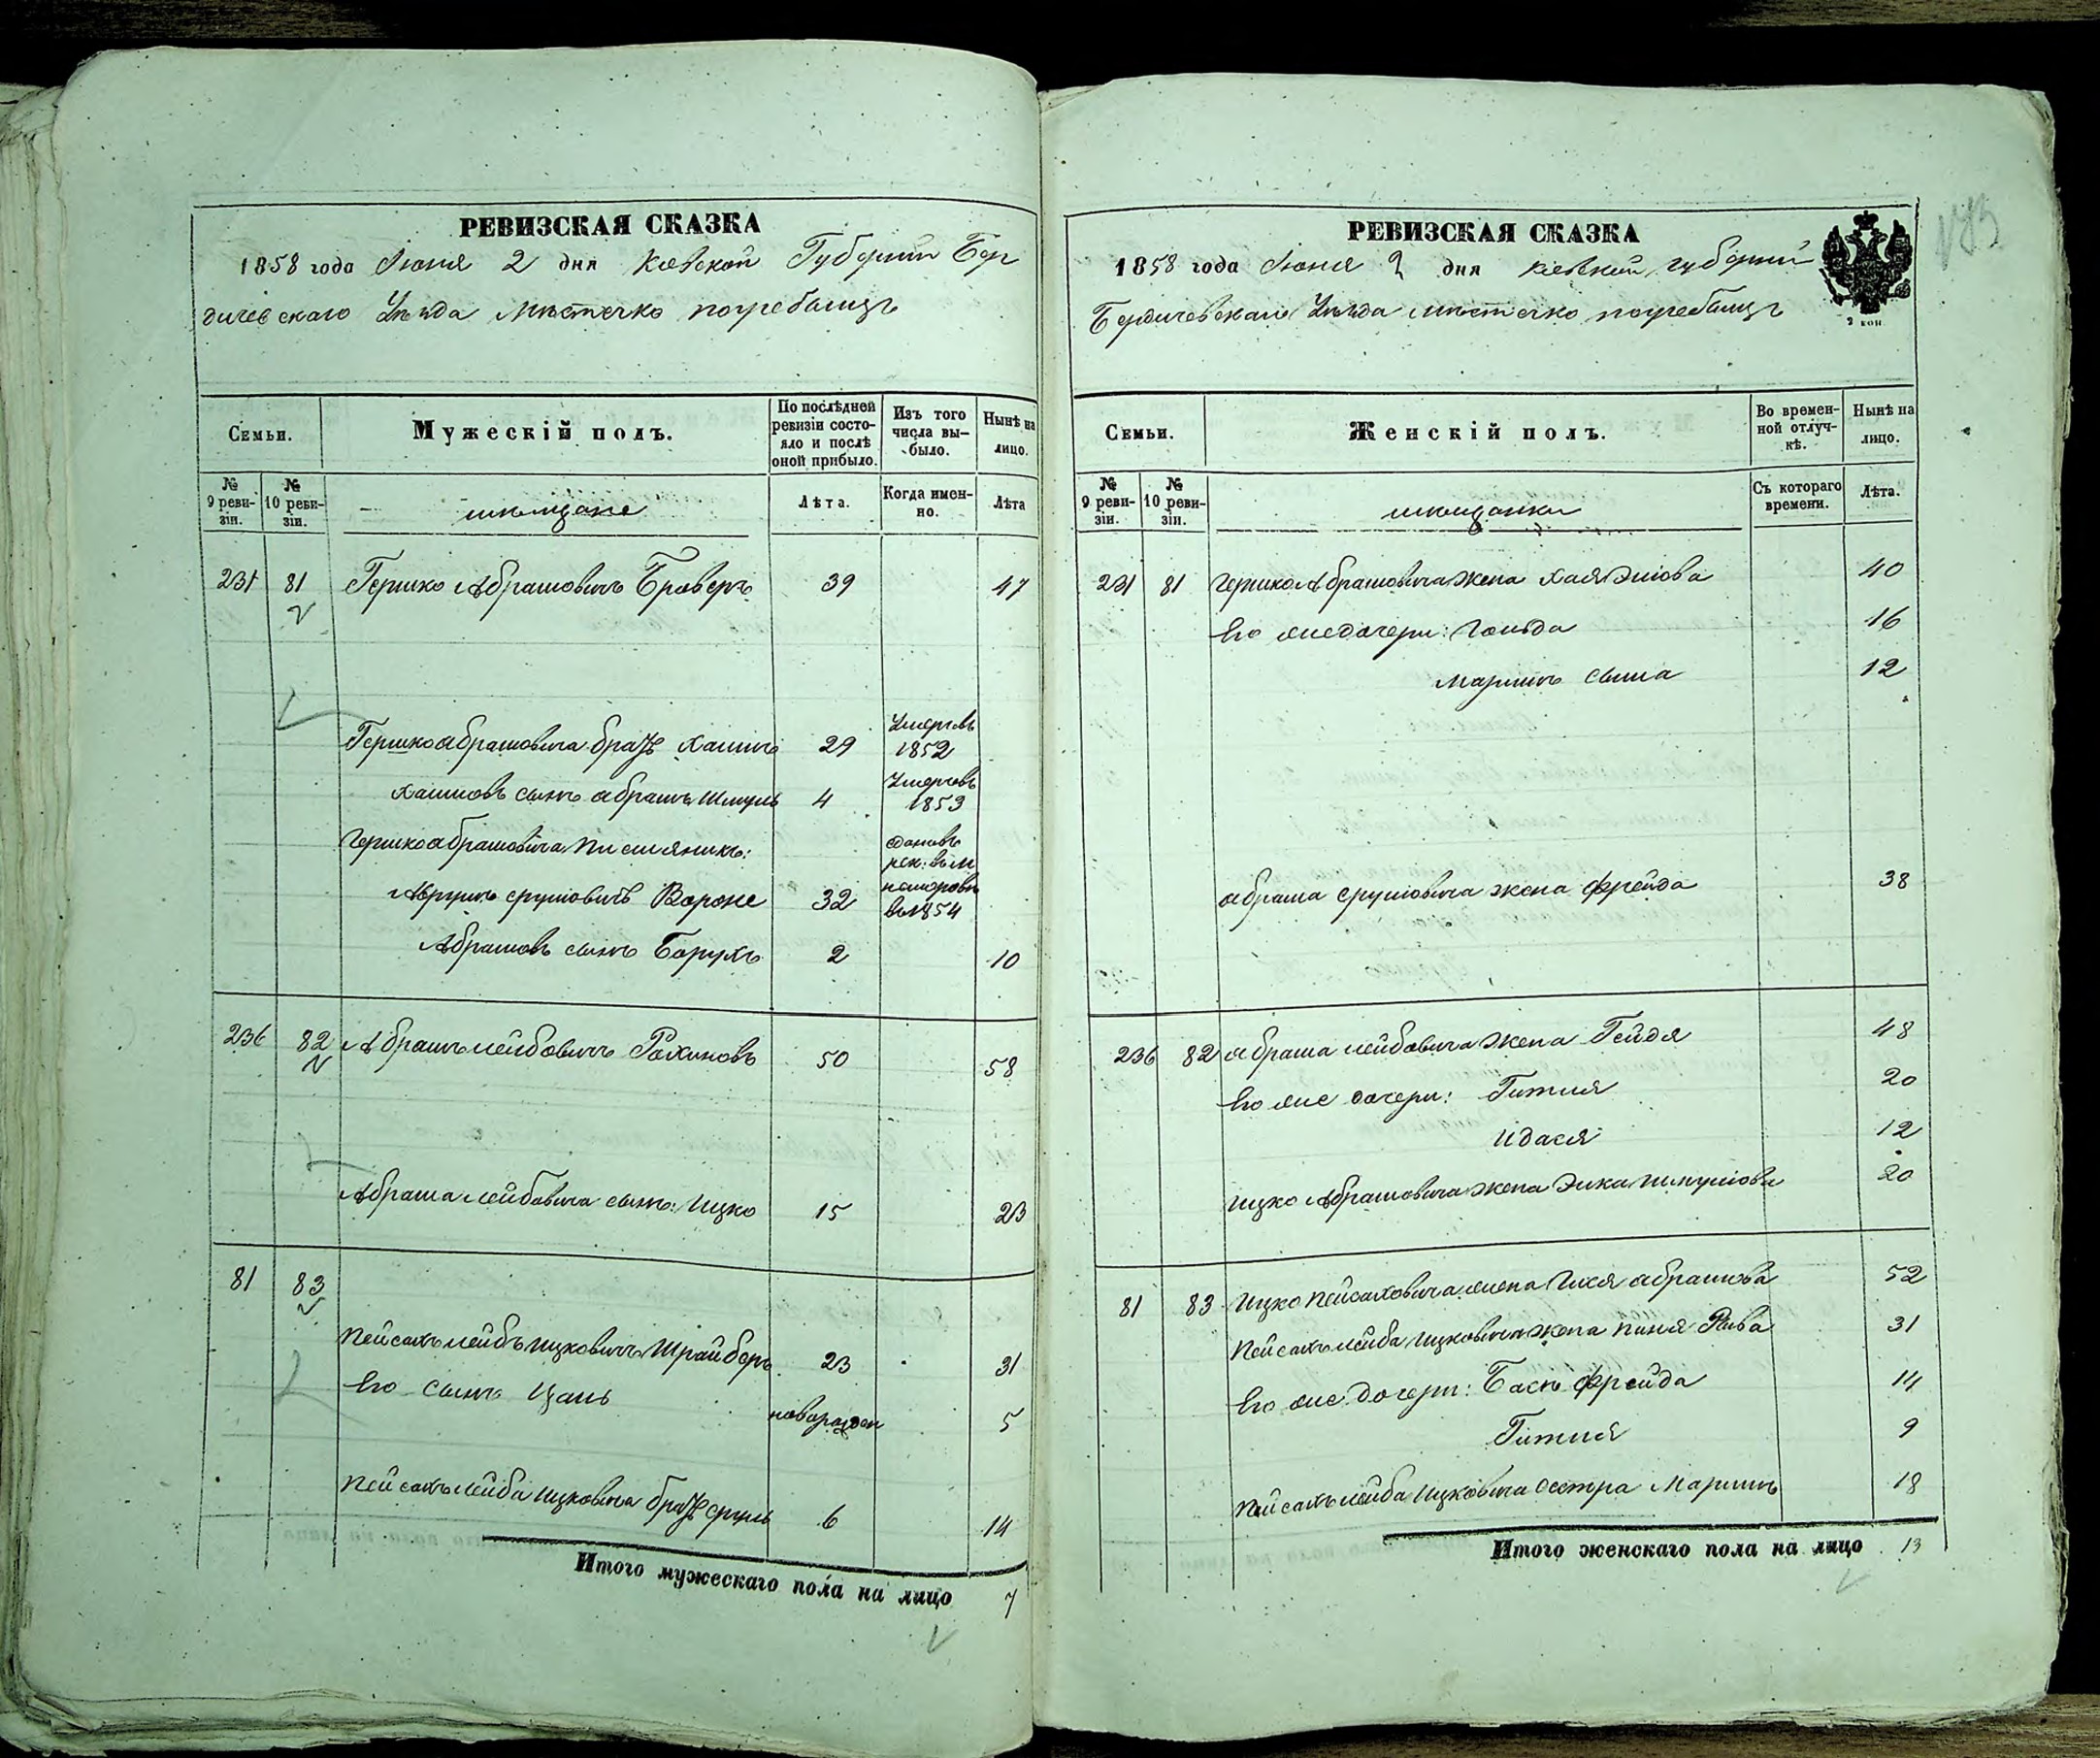 РЕВИЗСКАЯ СКАЗКА
1858 года Июня 2 дня Киевской Губернии Бер
дичевскаго Уѣзда мѣстечко погребыщъ
Семьи.
Мужескій полъ.
По послѣдней ревизіи состо-
яло и послѣ
оной прибыло.
Изъ того
числа вы-
было.
Нынѣ на
лицо.
№
9 реви-
зіи.
№
10 реви-
зіи.
мѣщане
Лѣта.
Когда имен-
но.
Лѣта
231 81 Гершко Абрамовичъ Броверъ 39 47
Гершко абрамовича братъ Хаимъ 29 Умеръ въ 1852
Хаимовъ сынъ абрамъ Шмуль 4 Умеръ въ 1853
Гершко абрамовича
Срулёвичъ 32 въ 1854
Абрамовъ сынъ Борухъ 2 10
236 82 Абрамъ Лейбовичъ 50 58
Абрама Лейбовича сынъ: Ицко 15 23
81 83
Пейсахъ Лейбъ Ицковичъ Шрайберъ 23 31
Его сынъ новорожден 5
Пейсахъ Лейба Ицковича братъ Сруль 6 14
Итого мужескаго пола на лицо 7
РЕВИЗСКАЯ СКАЗКА
1858 года Июня 2 дня Киевской губернии
Бердичевскаго Уѣзда мѣстечко погребыщъ
2 коп
Семьи.
Женскій полъ.
Во времен-
ной отлуч-
кѣ.
Нынѣ на
лицо.
№
9 реви-
зіи.
№
10 реви-
зіи.
мѣщанки
Съ котораго
времени.
Лѣта.
231 81 Гершко Абрамовича жена Хая 40
Его же дочери: Гольда 16
12
абрама Срулёвича жена Фрейда 38
236 82 абрама Лейбовича жена Гейдя 48
Его же дочери: Гитля 20
Идася 12
Ицко Абрамовича жена Шмулёва 20
81 83 Ицко Пейсаховича жена абрамова 52
Пейсахъ Лейба Ицковича жена Рива 31
Его же дочери: Бася Фрейда 14
Гитля 9
Пейсахъ Лейба Ицковича сестра 18
Итого женскаго пола на лицо 13